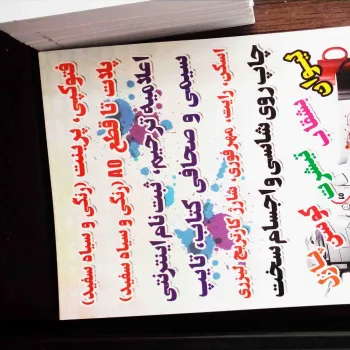 فتوکپی، پرینت (رنگی و سیاه سفید)
پلات تا قطع A0 (رنگی و سیاه سفید)
اعلامیه ترحیم، ثبت نام اینترنتی
سیمی و صحافی کتاب، تایپ
اسکن، رایت، مهر فوری، شارژ کارتریج لیزری
چاپ روی شاسی و اجسام سخت
لیوان
بشقاب
تیشرت
کوسن
پازل